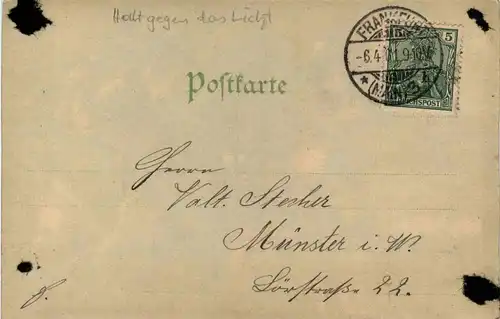 Halt gegen das Licht
FRANKFURT
5
-6.4.01.9-10V.
* (MAIN) 3. *
REICHSPOST
Postkarte
Herrn
Valt. Stecher
Münster i. W.
Lörstraße 22.